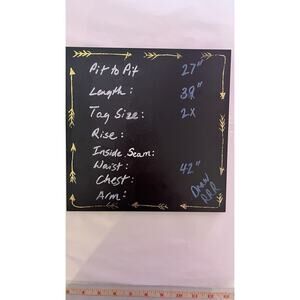 Pit to Pit 27"
Length: 39"
Tag Size: 2X
Rise:
Inside Seam:
Waist: 42"
Chest:
Arm: